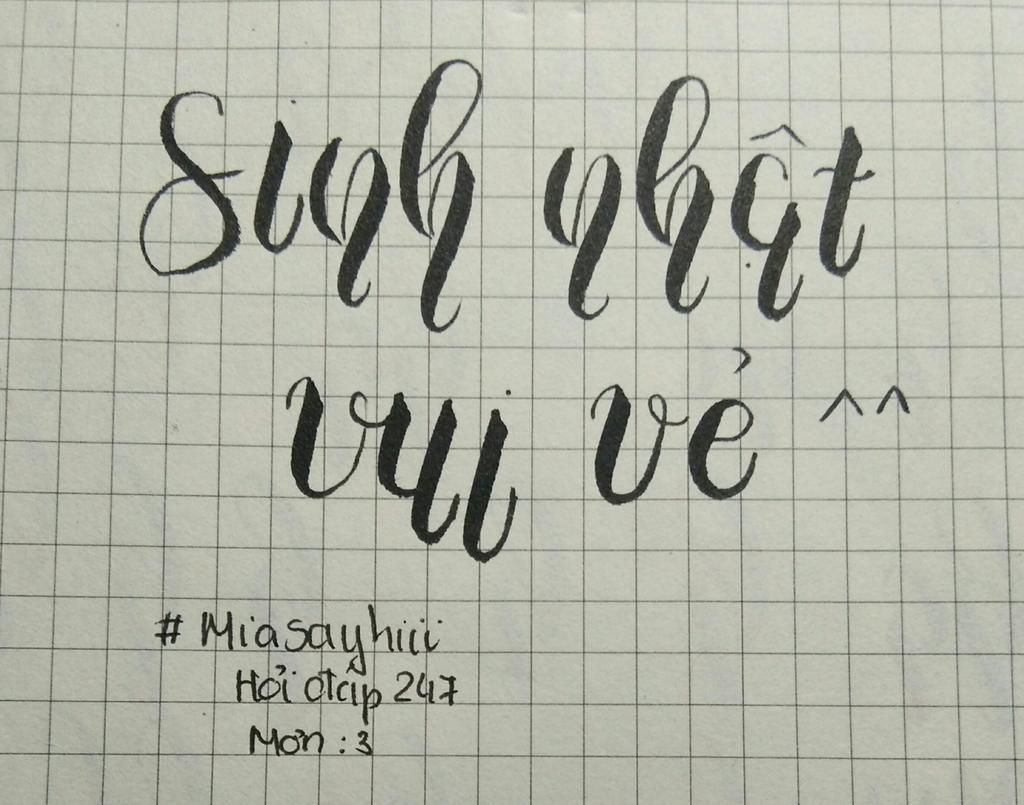 Sinh nhật
vui vẻ ^^
# Miasayhiii
Hỏi đáp 247
Mơn : 3